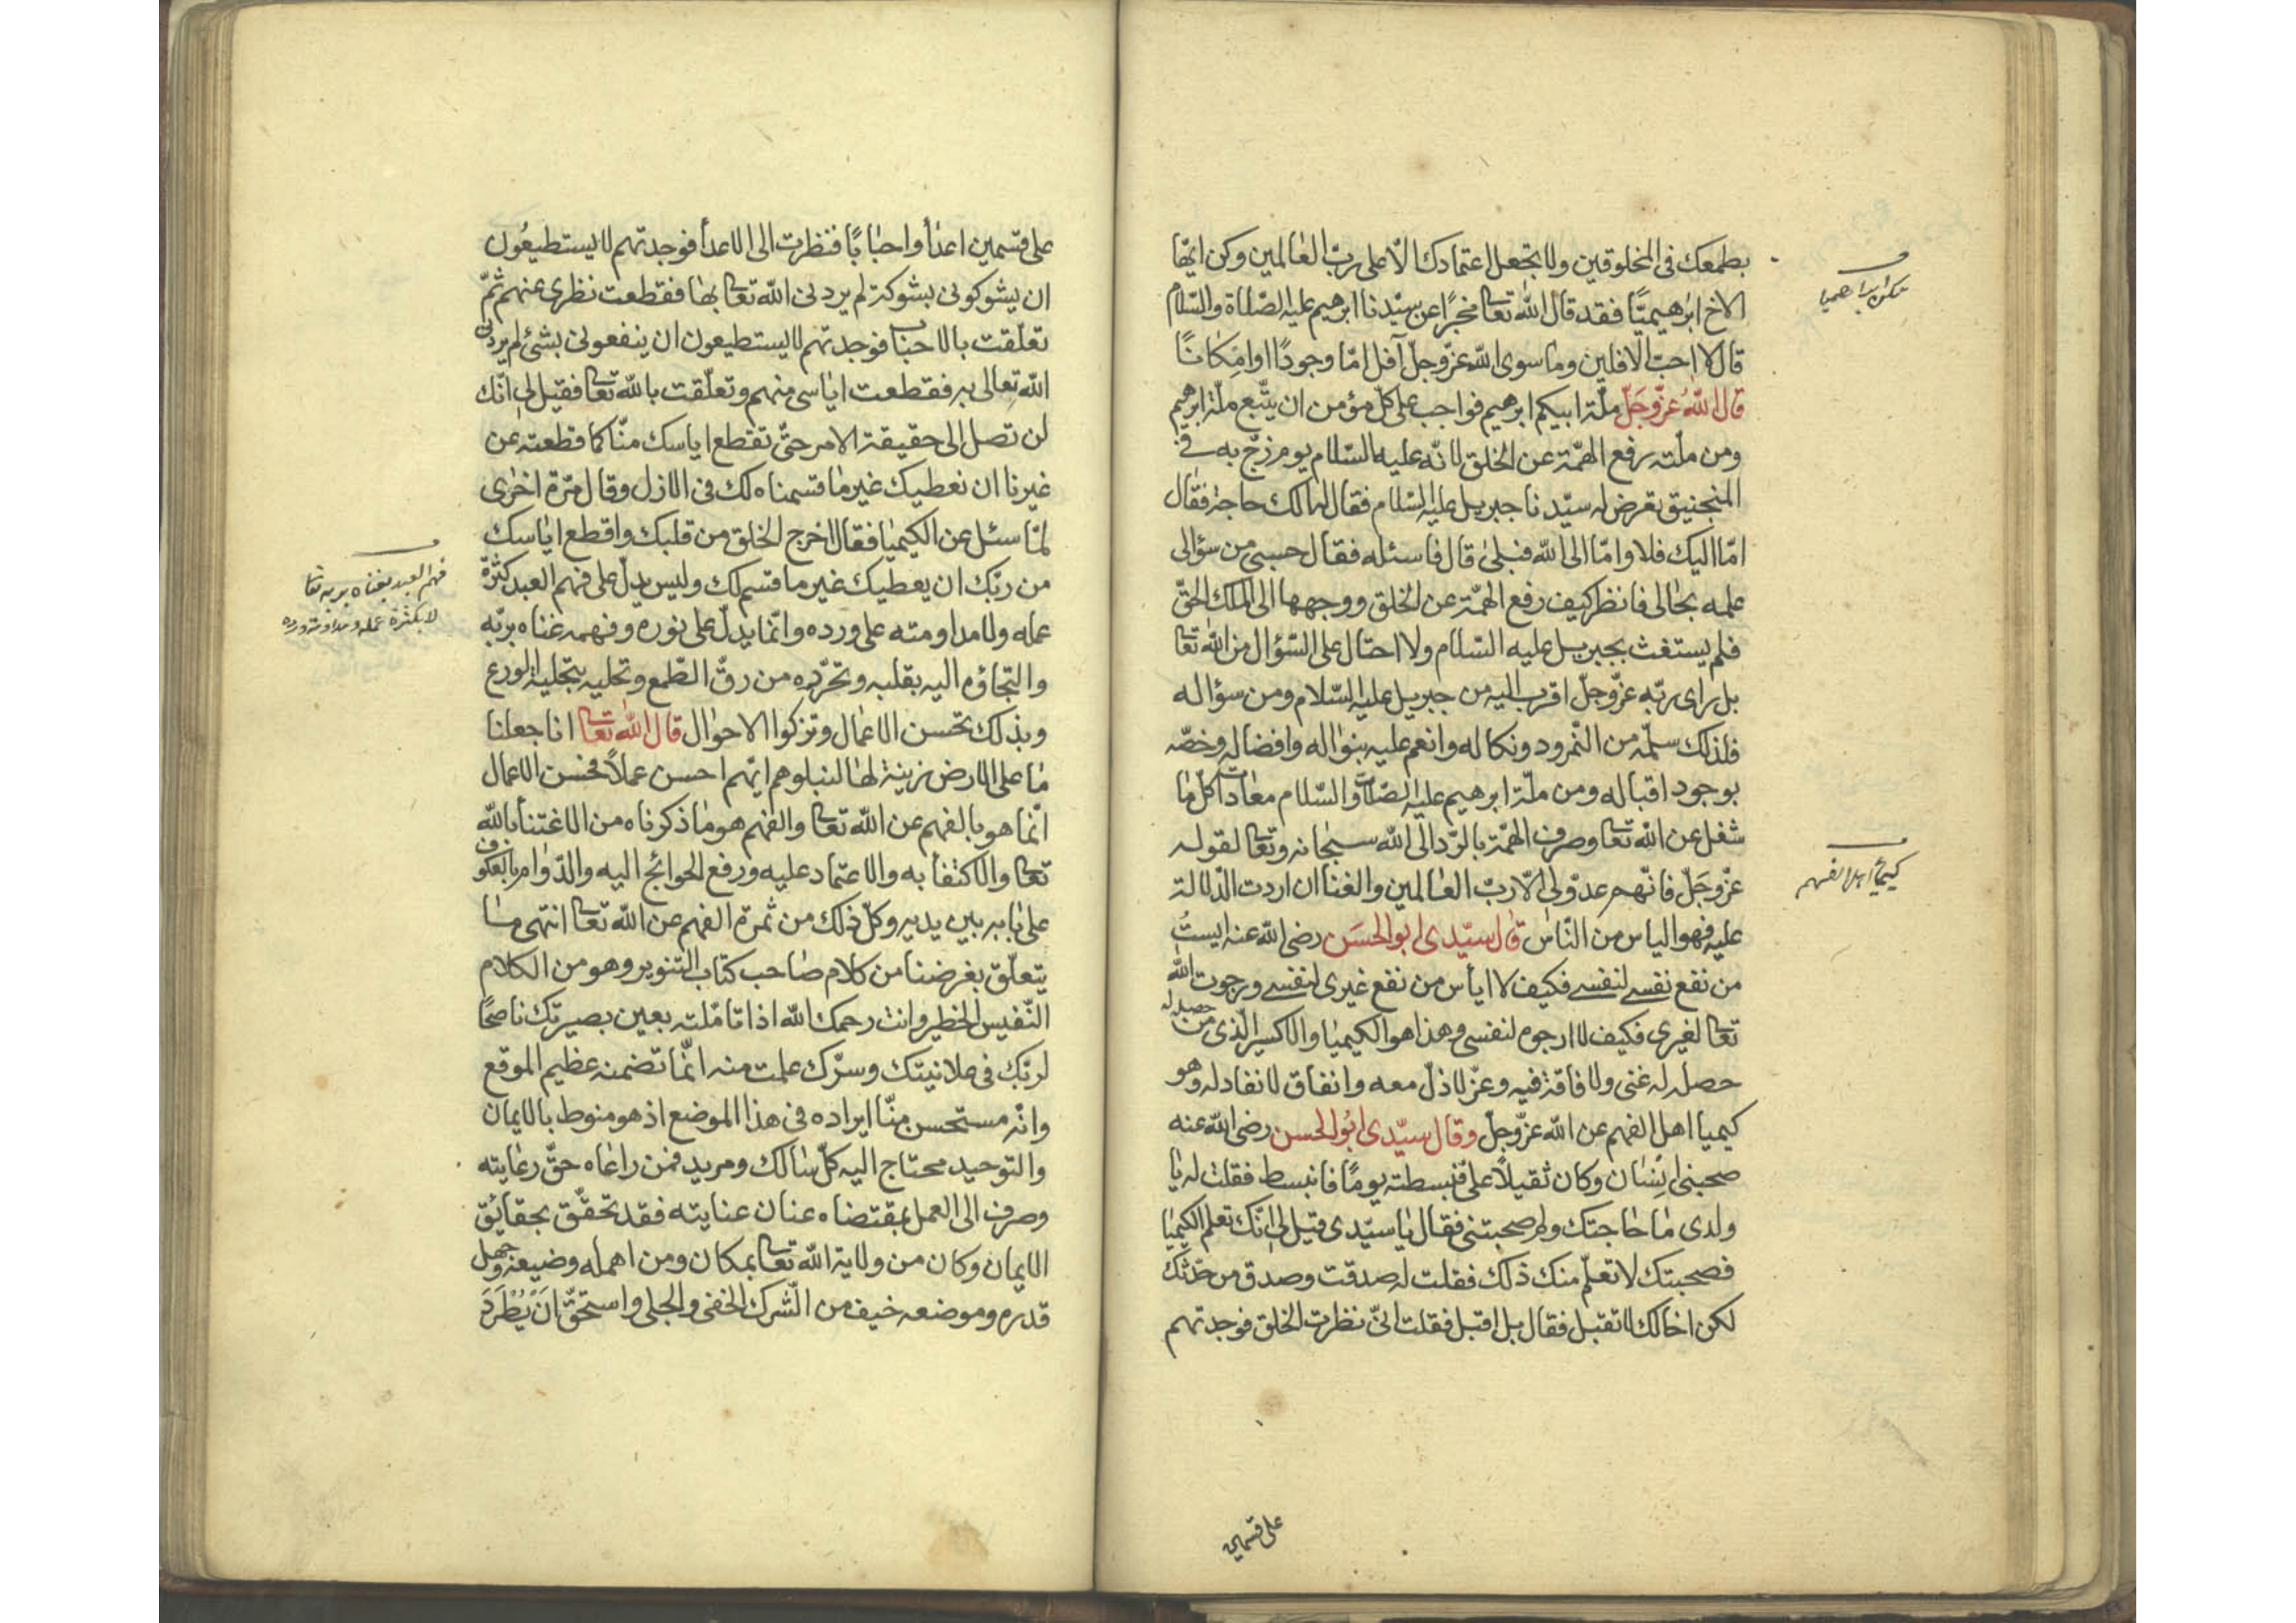 بطمعك فى المخلوقين ولا تجعل اعتمادك الّا على ربّ العالمين وكن ايّها
الاخ ابرهيميّا فقد قال الله تعا مخبرًا عن سيّدنا ابرهيم عليه الصّلاة والسّلام
قال لا احبّ الافلين وما سوى الله عزّ وجلّ آفل امّا وجودًا او امكانًا
قال اللهُ عزّ وجَلّ ملّة ابيكم ابرهيم فواجب على كلّ مؤمن ان يتّبع ملّة ابرهيم
ومن ملّته رفع الهمّة عن الخلق لانّه عليه السّلام يوم زجّ به فى
المنجنيق تعرض له سيّدنا جبريل عليه السّلام فقال الك حاجة فقال
امّا اليك فلا وامّا الى الله فبلى قال فاسئله فقال حسبى من سؤالى
علمه بحالى فانظر كيف رفع الهمّة عن الخلق ووجهها الى الملك الحقّ
فلم يستغث بجبريل عليه السّلام ولا احتال على السّؤال من الله تعا
بل راى ربّه عزّ وجلّ اقرب اليه من جبريل عليه السّلام ومن سؤاله
فلذلك سلّمه من النّمرود ونكاله وانعم عليه بنواله وافضاله وخصّه
بوجود اقباله ومن ملّة ابرهيم عليه الصّلاة والسّلام معادات كلّ ما
شغل عن الله تعا وصرف الهمّة بالرّد الى الله سبحانه وتعا لقوله
عزّ وجَلّ فانّهم عدوّ لى الّا ربّ العالمين والغنا ان اردت الدّلالة
عليه فهو الياس من النّاس قال سيّدى ابو الحسَن رضى الله عنه ايستُ
من نفع نفسى لنفسى فكيف لا ايأس من نفع غيرى لنفسى ورجوت الله
تعا لغيرى فكيف لا ارجوه لنفسى وهذا هو الكيميا والاكسير الّذى من حصل له
حصل له غنى ولا فاقة فيه وعزّ لا ذلّ معه وانفاق لا نفاد له وهو
كيميا اهل الفهم عن الله عزّ وجلّ وقال سيّدى ابُو الحسن رضى الله عنه
صحبنى انسان وكان ثقيلًا علىّ فبسطته يومًا فانبسط فقلت له يا
ولدى ما حاجتك ولم صحبتنى فقال يا سيّدى قيل لى انّك تعلم الكيميا
فصحبتك لاتعلّم منك ذلك فقلت له صدقت وصدق من حدّثك
لكن اخالك لا تقبل فقال بل اقبل فقلت انّى نظرت الخلق فوجدتهم
على قسمين
كيمياء اهل الفهم
على قسمين اعداأ واحبابًا فنظرت الى الاعدأ فوجدتهم لا يستطيعُون
ان يشوكونى بشوكة لم يردنى الله تعا بها فقطعت نظرى عنهم ثمّ
تعلّقت بالاحباب فوجدتهم لا يستطيعون ان ينفعونى بشئ لم يردنى
الله تعالى به فقطعت اياسى منهم وتعلّقت بالله تعا فقيل لى انّك
لن تصل الى حقيقة الامر حتّى تقطع اياسك منّا كما قطعته عن
غيرنا ان نعطيك غير ما قسمناه لك فى الازل وقال مرّة اخرى
لمّا سئل عن الكيميا فقال اخرج الخلق من قلبك واقطع اياسك
من ربّك ان يعطيك غير ما قسم لك وليس يدلّ على فهم العبد كثرة
عمله ولا مداومته على ورده وانّما يدلّ على نوره وفهمه غناه بربّه
والتجاؤه اليه بقلبه وتحرّره من رقّ الطّمع وتحليه بتحلية الورع
وبذلك تحسن الاعمال وتزكوا الاحوال قال الله تعا انا جعلنا
ما على الارض زينة لها لنبلوهم ايّهم احسن عملًا فحسن الاعمال
انّما هو بالفهم عن الله تعا والفهم هو ما ذكرناه من الاغتنأ بالله
تعا والاكتفأ به والاعتماد عليه ورفع الحوائج اليه والدّوام بالعكوف
على بابه بين يديه وكلّ ذلك من ثمرة الفهم عن الله تعا انتهى ما
يتعلّق بغرضنا من كلام صاحب كتاب التنوير وهو من الكلام
النّفيس الخطير وانت رحمك الله اذا تامّلته بعين بصيرتك ناصحًا
لربّك فى علانيتك وسرّك علمت منه انّ ما تضمنه عظيم الموقع
وانّه مستحسن منّا ايراده فى هذا الموضع اذ هو منوط بالايمان
والتوحيد محتاج اليه كلّ سالك ومريد فمن راعاه حقّ رعايته
وصرف الى العمل بمقتضاه عنان عنايته فقد تحقّق بحقايق
الايمان وكان من ولاية الله تعا بمكان ومن اهمله وضيعه وجهل
قدره وموضعه خيف من الشّرك الخفى والجلى واستحقّ انَ يُطْرَدَ
فهم العبد بغناه بربه تعا
لا بكثرة عمله ومداومته ورده